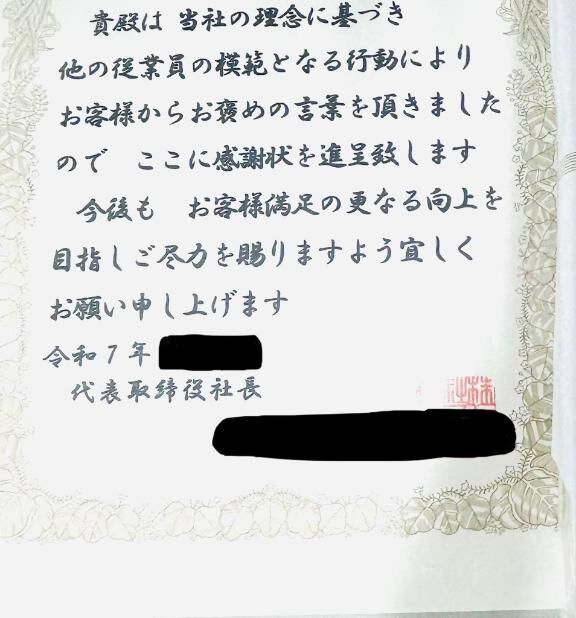 貴殿は 当社の理念に基づき
他の従業員の模範となる行動により
お客様からお褒めの言葉を頂きました
ので ここに感謝状を進呈致します
今後も お客様満足の更なる向上を
目指しご尽力を賜りますよう宜しく
お願い申し上げます
令和7年
代表取締役社長